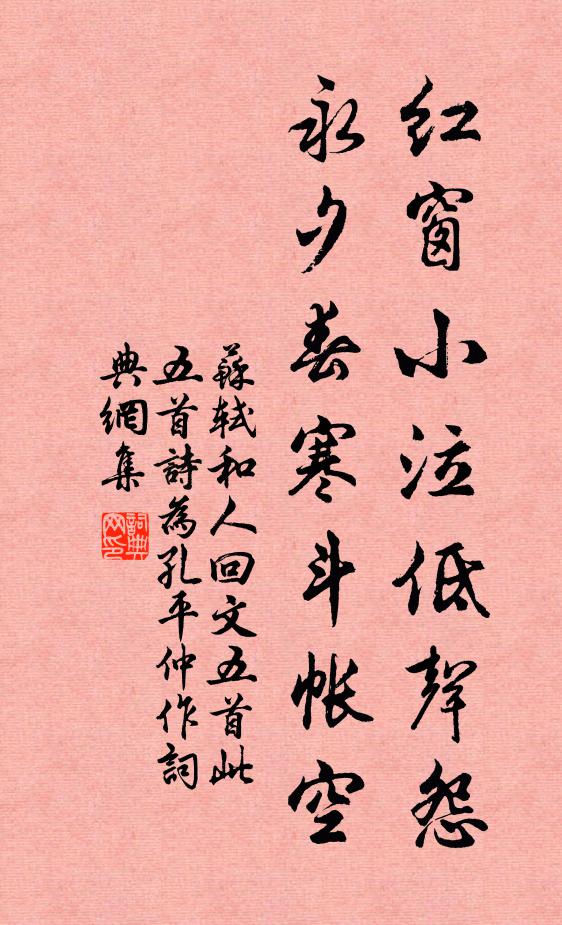 红窗小泣低聲怨
永夕春寒斗帐空
蘇軾和人回文五首此
五首詩為孔平仲作詞
典網集
詞典
网印